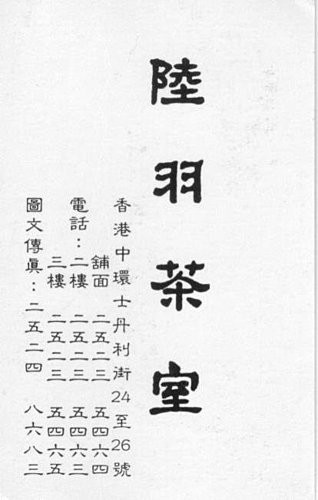 陸羽茶室
香港中環士丹利街24至26號
舖面 二五二三 五四六四
電話：二樓 二五二三 五四六三
三樓 二五二三 五四六五
圖文傳眞：二五二四 八六八三